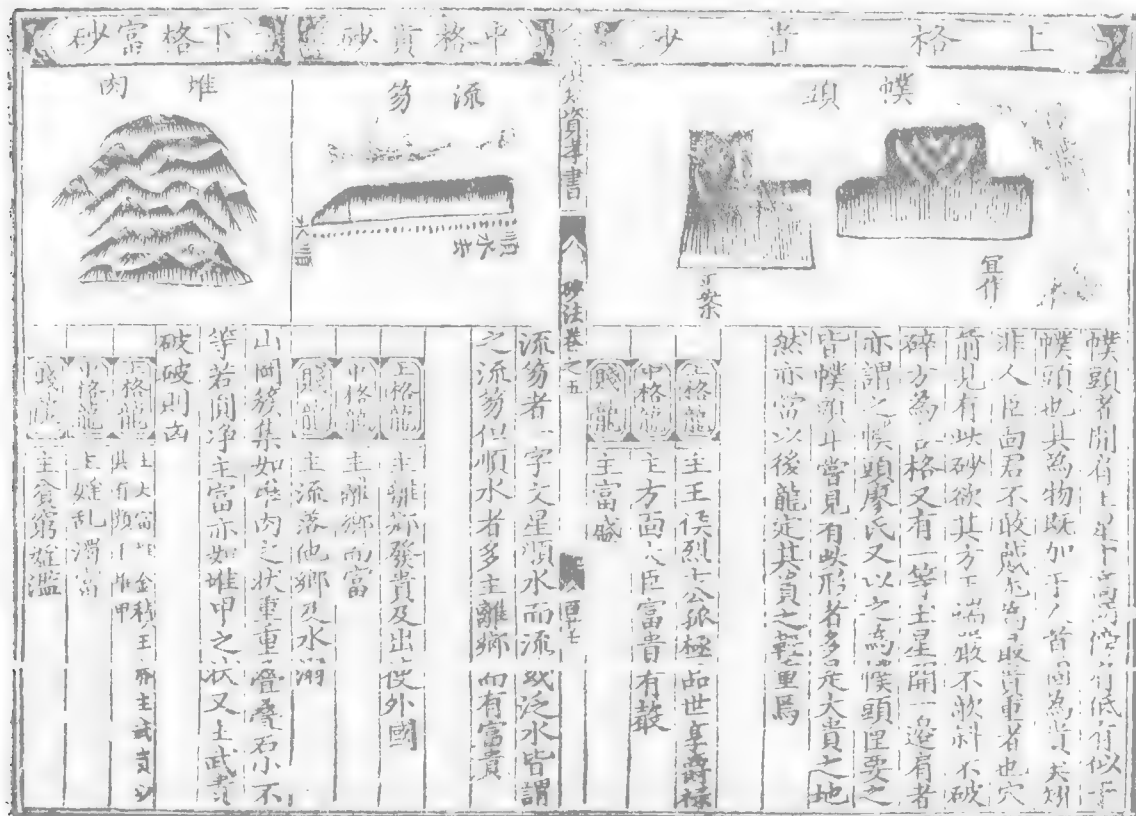 上格貴砂
幞頭
宜作
正案
幞頭者開肩土星中高兩傍肩低有似乎
幞頭也其為物既加于人首固為貴夫矧
非人臣面君不敢戴尤為最貴重者也穴
前見有此砂欲其方正端嚴不欹斜不破
碎方為合格又有一等土星開一邊肩者
亦謂之幞頭廖氏又以之為幞頭匣要之
皆幞頭耳嘗見有此形者多是大貴之地
然亦當以後龍定其貴之輕重焉
上格龍 主王侯烈士公孤極品世享爵祿
中格龍 主方面大臣富貴有敵
賤龍 主富盛
資孝書
砂法卷之五
中格貴砂
流笏
順水出
流笏者一字文星順水而流或泛水皆謂
之流笏似順水者多主離鄉而有富貴
上格龍 主離鄉發貴及出使外國
中格龍 主離鄉而富
賤龍 主流落他鄉及水溺
下格富砂
堆肉
山岡簇集如堆肉之狀重重疊疊石小不
等若圓净主富亦如堆甲之狀又主武貴
破破則凶
上格龍
中格龍 主婬乱濁富
賤龍 主貧窮婬濫